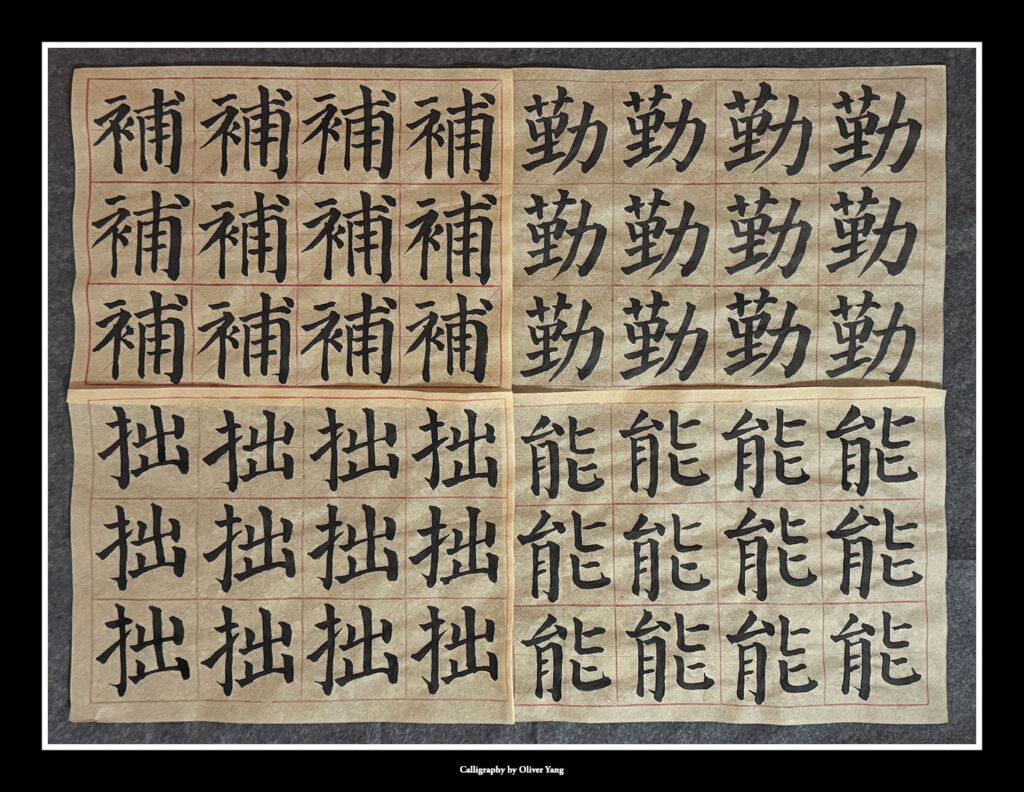 補補補補勤勤勤勤
補補補補勤勤勤勤
補補補補勤勤勤勤
拙拙拙拙能能能能
拙拙拙拙能能能能
拙拙拙拙能能能能
Calligraphy by Oliver Yang